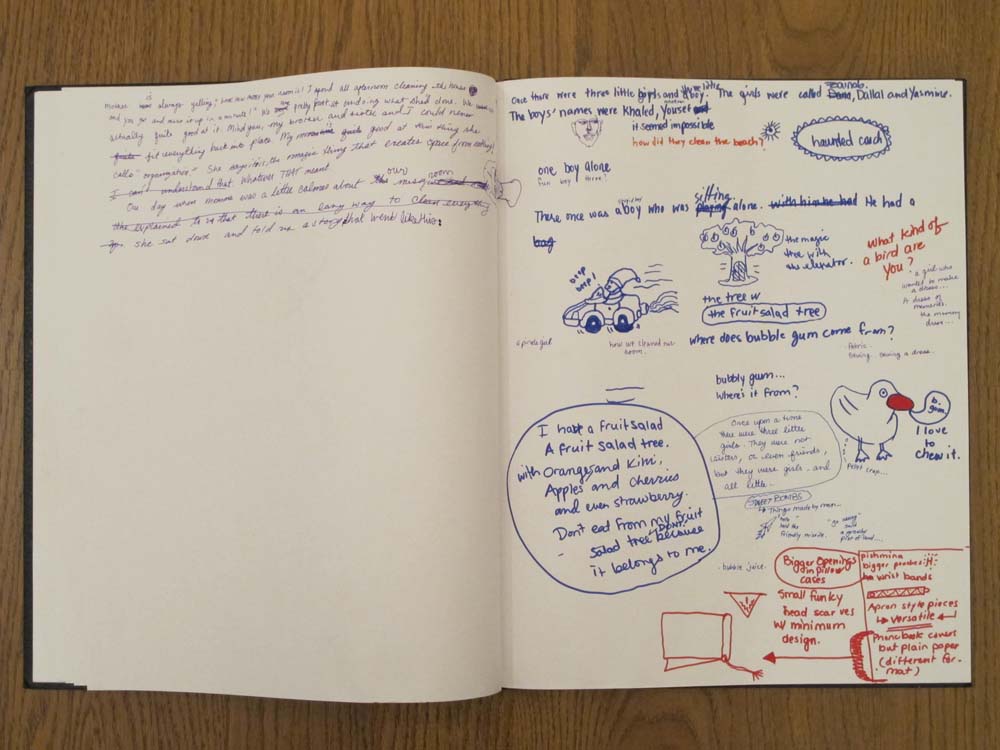 mother is always yelling; "look how messy your room is! I spend all afternoon cleaning the house
and you go and mess it up in a minute!" We pretty fast at undoing what she'd done. We
actually quite good at it. Mind you, my brother and sister and I could never
fit everything back into place. My good at this thing she
calls "organization". She says it is the magic thing that creates space from nothing!
I can't understand that. Whatever THAT meant
One day when momma was a little calmer about our room
she explained to us that there is an easy way to clean everything
she sat down and told me a story that went like this:
Once there were three little girls and three little boy. The girls were called Zainab, Dallal and Yasmine.
The boys' names were Khaled, Yousef
it seemed impossible
how did they clean the beach?
haunted couch
one boy alone
fun boy three!
There once was a boy who was sitting playing alone. with him he had He had a
bag
beep
beep!
the magic
tree with
the elevator.
What kind of
a bird are
you?
a girl who
wanted to make
a dress...
A dress of
memories.
the mummy
dress...
the tree w
the fruitsalad tree
how we cleaned our
room.
where does bubble gum come from?
Fabric
Sewing. Sewing a dress.
bubbly gum...
Where's it from?
b.
gum.
I love
to
chew it.
Petit crap...
I have a fruitsalad
A fruit salad tree.
with Oranges and Kiwi,
Apples and cherries
and even strawberry.
Don't eat from my fruit
- salad tree DONT because
it belongs to me.
Once upon a time
there were three little
girls. They were not
sisters, or even friends,
but they were girls. and
all little.
SWEET BOMBS
Things made by men...
friendly missile.
"go away"
said
a grenade
plot of land...
bubble juice.
Bigger Openings
in pillow
cases
pishmina
bigger ponchos
wrist bands
Small funky
head scarves
w/ minimum
design.
Apron style pieces
versatile
Phonebook covers
but plain paper
(different for-
mat)